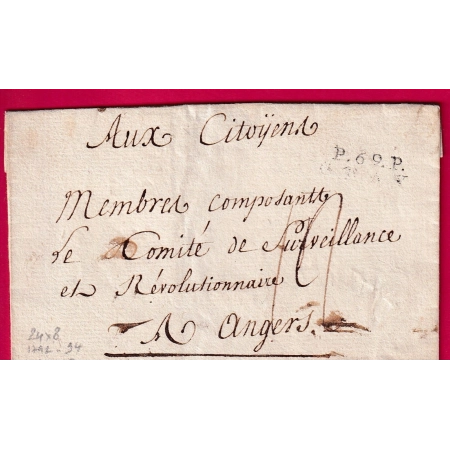 Aux Citoÿens
P.69.P.
Membres composants
Le Comité de Surveillance
et Révolutionnaire
A Angers.
24x8
1792-94